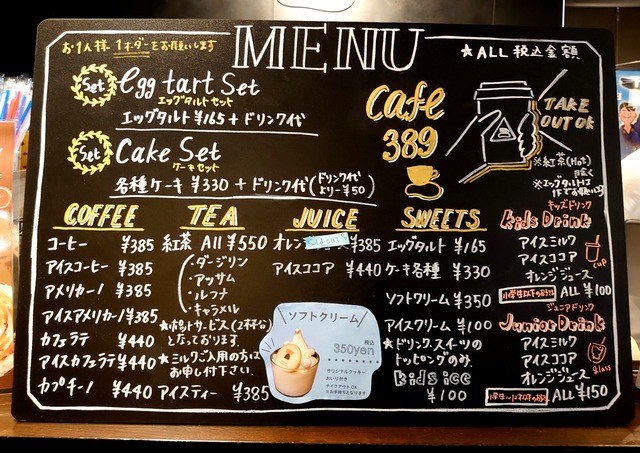 お1人様 1オーダーをお願いします
MENU
★ALL 税込金額
Set
egg tart Set
エッグタルト セット
エッグタルト ¥165 + ドリンク代
Set
Cake Set
ケーキセット
各種ケーキ ¥330 + ドリンク代(ドリンク代より-¥50)
Cafe
389
TAKE
OUT OK
※紅茶(Hot)
除く
COFFEE
コーヒー ¥385
アイスコーヒー ¥385
アメリカーノ ¥385
アイスアメリカーノ ¥385
カフェラテ ¥440
アイスカフェラテ ¥440
カプチーノ ¥440
TEA
紅茶 All ¥550
・ダージリン
・アッサム
・ルフナ
・キャラメル
★ポットサービス(2杯分)
となっております。
★ミルクご入用の方は
お申し付け下さい。
アイスティー ¥385
JUICE
オレン ¥385
アイスココア ¥440
ソフトクリーム
税込
350yen
オリジナルクッキー
テイクアウトOK
SWEETS
エッグタルト ¥165
ケーキ各種 ¥330
ソフトクリーム ¥350
アイスクリーム ¥100
★ドリンク、スイーツの
トッピングのみ
kids ice
¥100
キッズドリンク
kids Drink
アイスミルク
アイスココア
オレンジジュース
cup
ALL ¥100
ジュニアドリンク
Junior Drink
アイスミルク
アイスココア
オレンジジュース
glass
ALL ¥150